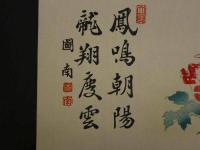 鳳鳴朝陽
龍翔慶雲
圖南